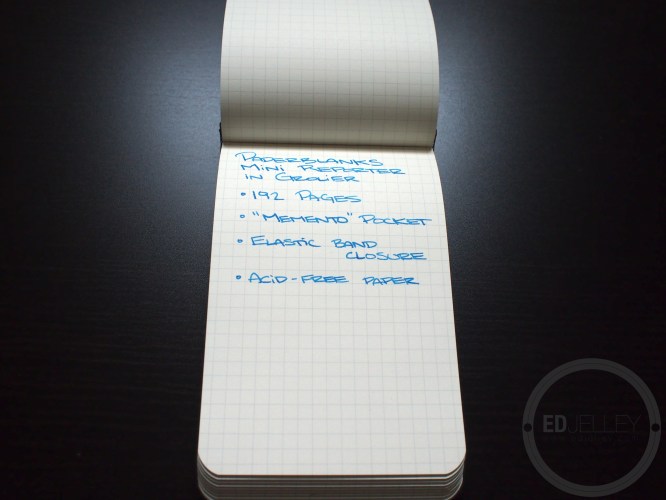 PAPERBLANKS
MINI REPORTER
IN GROLIER
• 192 PAGES
• "MEMENTO" POCKET
• ELASTIC BAND
CLOSURE
• ACID-FREE PAPER
EDJELLEY